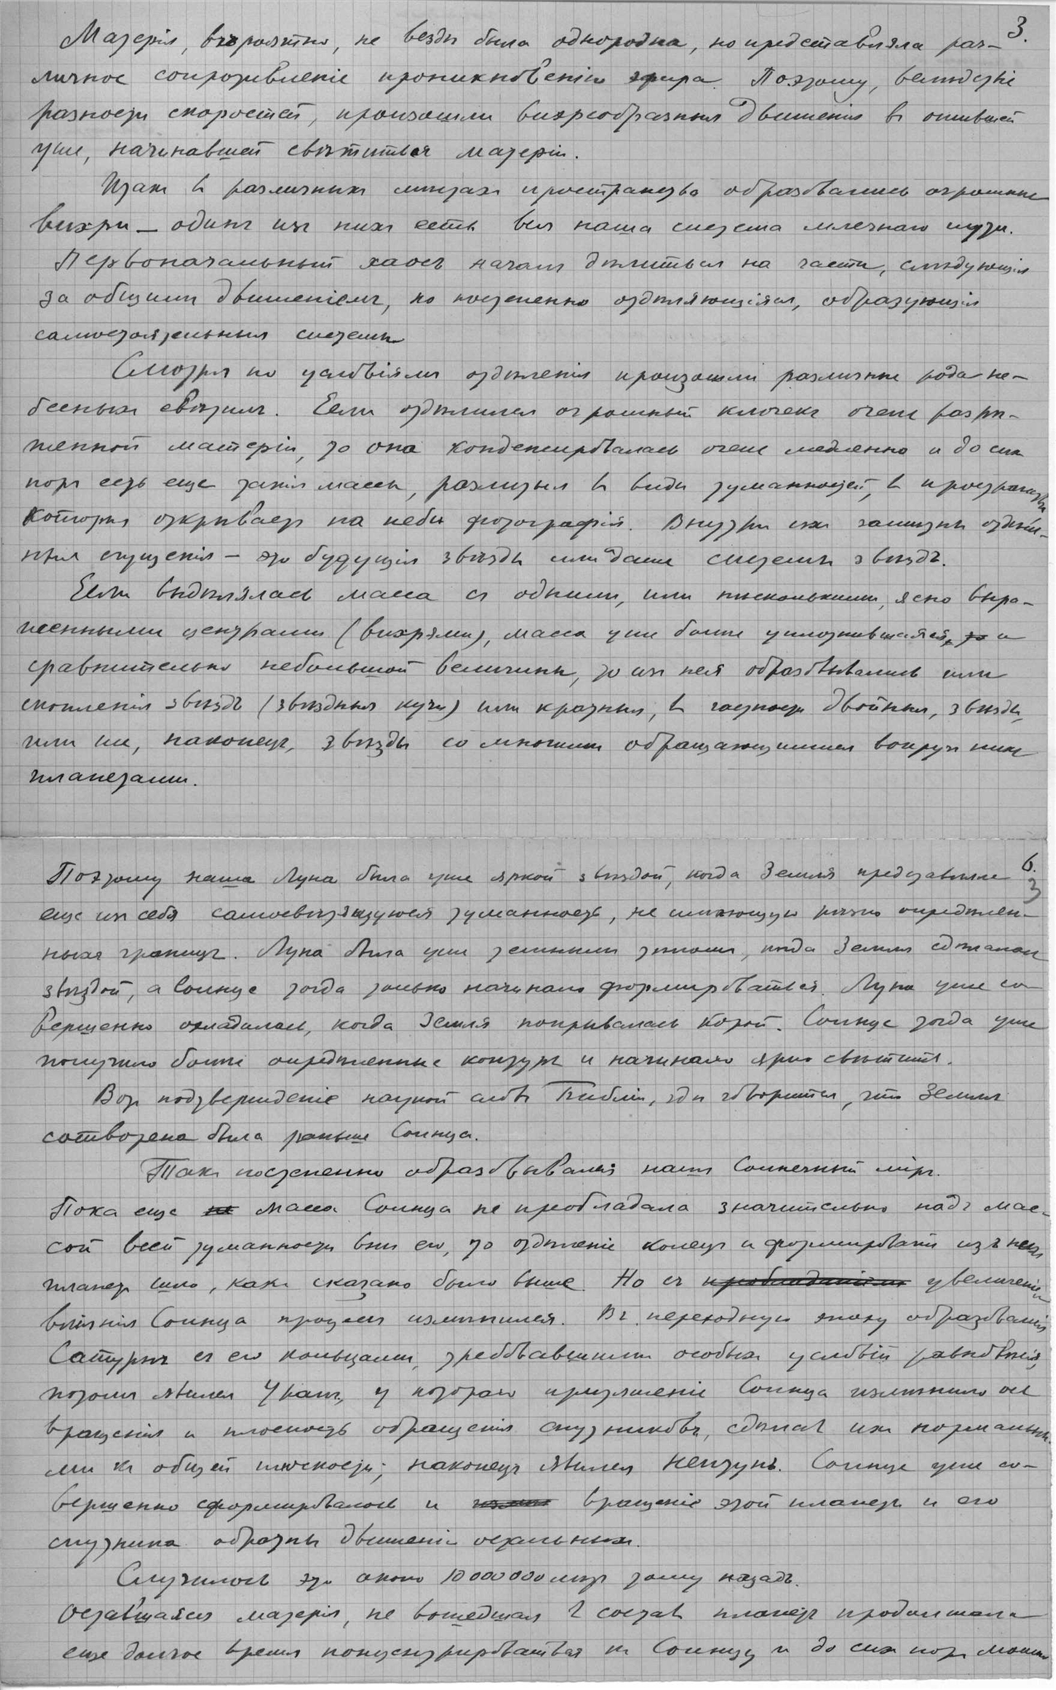 3.
Матерія, вѣроятно, не вездѣ была однородна, но представляла раз-
личное сопротивленіе проникновенію эѳира. Поэтому, вслѣдствіе
разности скоростей, произошли вихреобразныя движенія въ ожившей
уже, начинавшей свѣтиться матеріи.
Итакъ въ различныхъ мѣстахъ пространства образовались огромные
вихри — одинъ изъ нихъ есть вся наша система млечнаго пути.
Первоначальный хаосъ началъ дѣлиться на части, слѣдующія
за общимъ движеніемъ, но постепенно отдѣляющіяся, образующія
самостоятельныя системы.
Смотря по условіямъ отдѣленія произошли различные рода не-
бесныхъ свѣтилъ. Если отдѣлился огромный клочекъ очень разрѣ-
женной матеріи, то она конденсировалась очень медленно и до сихъ
поръ есть еще такія массы, разлитыя въ видѣ туманностей, въ пространствѣ
которыя открываетъ на небѣ фотографія. Внутри ихъ замѣтны отдѣль-
ныя сгущенія — это будущія звѣзды или даже системы звѣздъ.
Если выдѣлялась масса съ однимъ, или нѣсколькими, ясно выра-
женными центрами (вихрями), масса уже болѣе уплотнившаяся, и
сравнительно небольшой величины, то изъ нея образовывались или
скопленія звѣздъ (звѣздныя кучи) или кратныя, въ частности двойныя, звѣзды,
или же, наконецъ, звѣзды со многими обращающимися вокругъ нихъ
планетами.
6.
3
Поэтому наша Луна была уже яркой звѣздой, когда Земля представляла
еще изъ себя самосвѣтящуюся туманность, не имѣющую рѣзко опредѣлен-
ныхъ границъ. Луна была уже темнымъ тѣломъ, когда Земля сдѣлалась
звѣздой, а Солнце тогда только начинало формироваться. Луна уже со-
вершенно охладилась, когда Земля покрывалась корой. Солнце тогда уже
получило болѣе опредѣленные контуры и начинало ярко свѣтить.
Вотъ подтвержденіе наукой словъ Библіи, гдѣ говорится, что Земля
сотворена была раньше Солнца.
Такъ постепенно образовывался нашъ Солнечный міръ.
Пока еще масса Солнца не преобладала значительно надъ мас-
сой всей туманности внѣ его, то отдѣленіе колецъ и формированіе изъ нихъ
планетъ шло, какъ сказано было выше. Но съ увеличеніемъ
вліянія Солнца процессъ измѣнился. Въ переходную эпоху образовался
Сатурнъ съ его кольцами, требовавшими особыхъ условій равновѣсія,
потомъ явился Уранъ, у котораго притяженіе Солнца измѣнило ось
вращенія и плоскость обращенія спутниковъ, сдѣлавъ ихъ нормальны-
ми къ общей плоскости; наконецъ явился Нептунъ. Солнце уже со-
вершенно сформировалось и вращеніе этой планеты и его
спутника обратны движенію остальныхъ.
Случилось это около 10 000 000 лѣтъ тому назадъ.
Оставшаяся матерія, не вошедшая въ составъ планетъ продолжала
еще долгое время концентрироваться къ Солнцу и до сихъ поръ можно